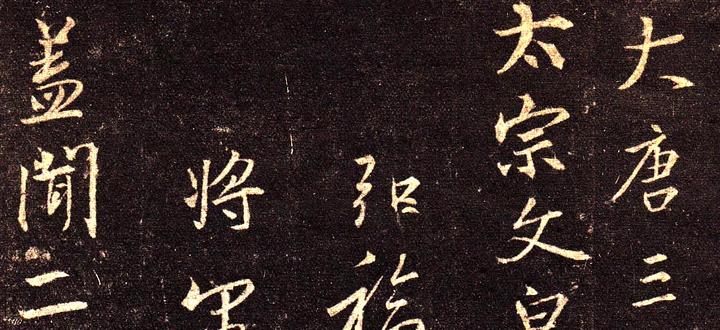 大唐三
太宗文皇
弘福
将軍
盖聞二